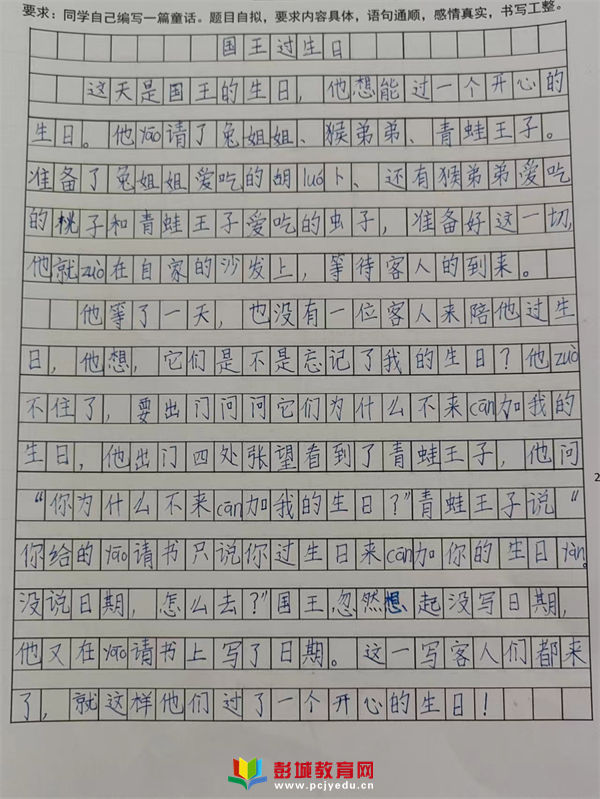 要求：同学自己编写一篇童话。题目自拟，要求内容具体，语句通顺，感情真实，书写工整。
国王过生日
这天是国王的生日，他想能过一个开心的
生日。他yāo请了兔姐姐、猴弟弟、青蛙王子。
准备了兔姐姐爱吃的胡luó卜、还有猴弟弟爱吃
的桃子和青蛙王子爱吃的虫子，准备好这一切，
他就zuò在自家的沙发上，等待客人的到来。
他等了一天，也没有一位客人来陪他过生
日，他想，它们是不是忘记了我的生日？他zuò
不住了，要出门问问它们为什么不来cān加我的
生日，他出门四处张望看到了青蛙王子，他问
“你为什么不来cān加我的生日？”青蛙王子说“
你给的yāo请书只说你过生日来cān加你的生日yàn。
没说日期，怎么去？”国王忽然想起没写日期，
他又在yāo请书上写了日期。这一写客人们都来
了，就这样他们过了一个开心的生日！
2
彭城教育网
www.pcjyedu.cn